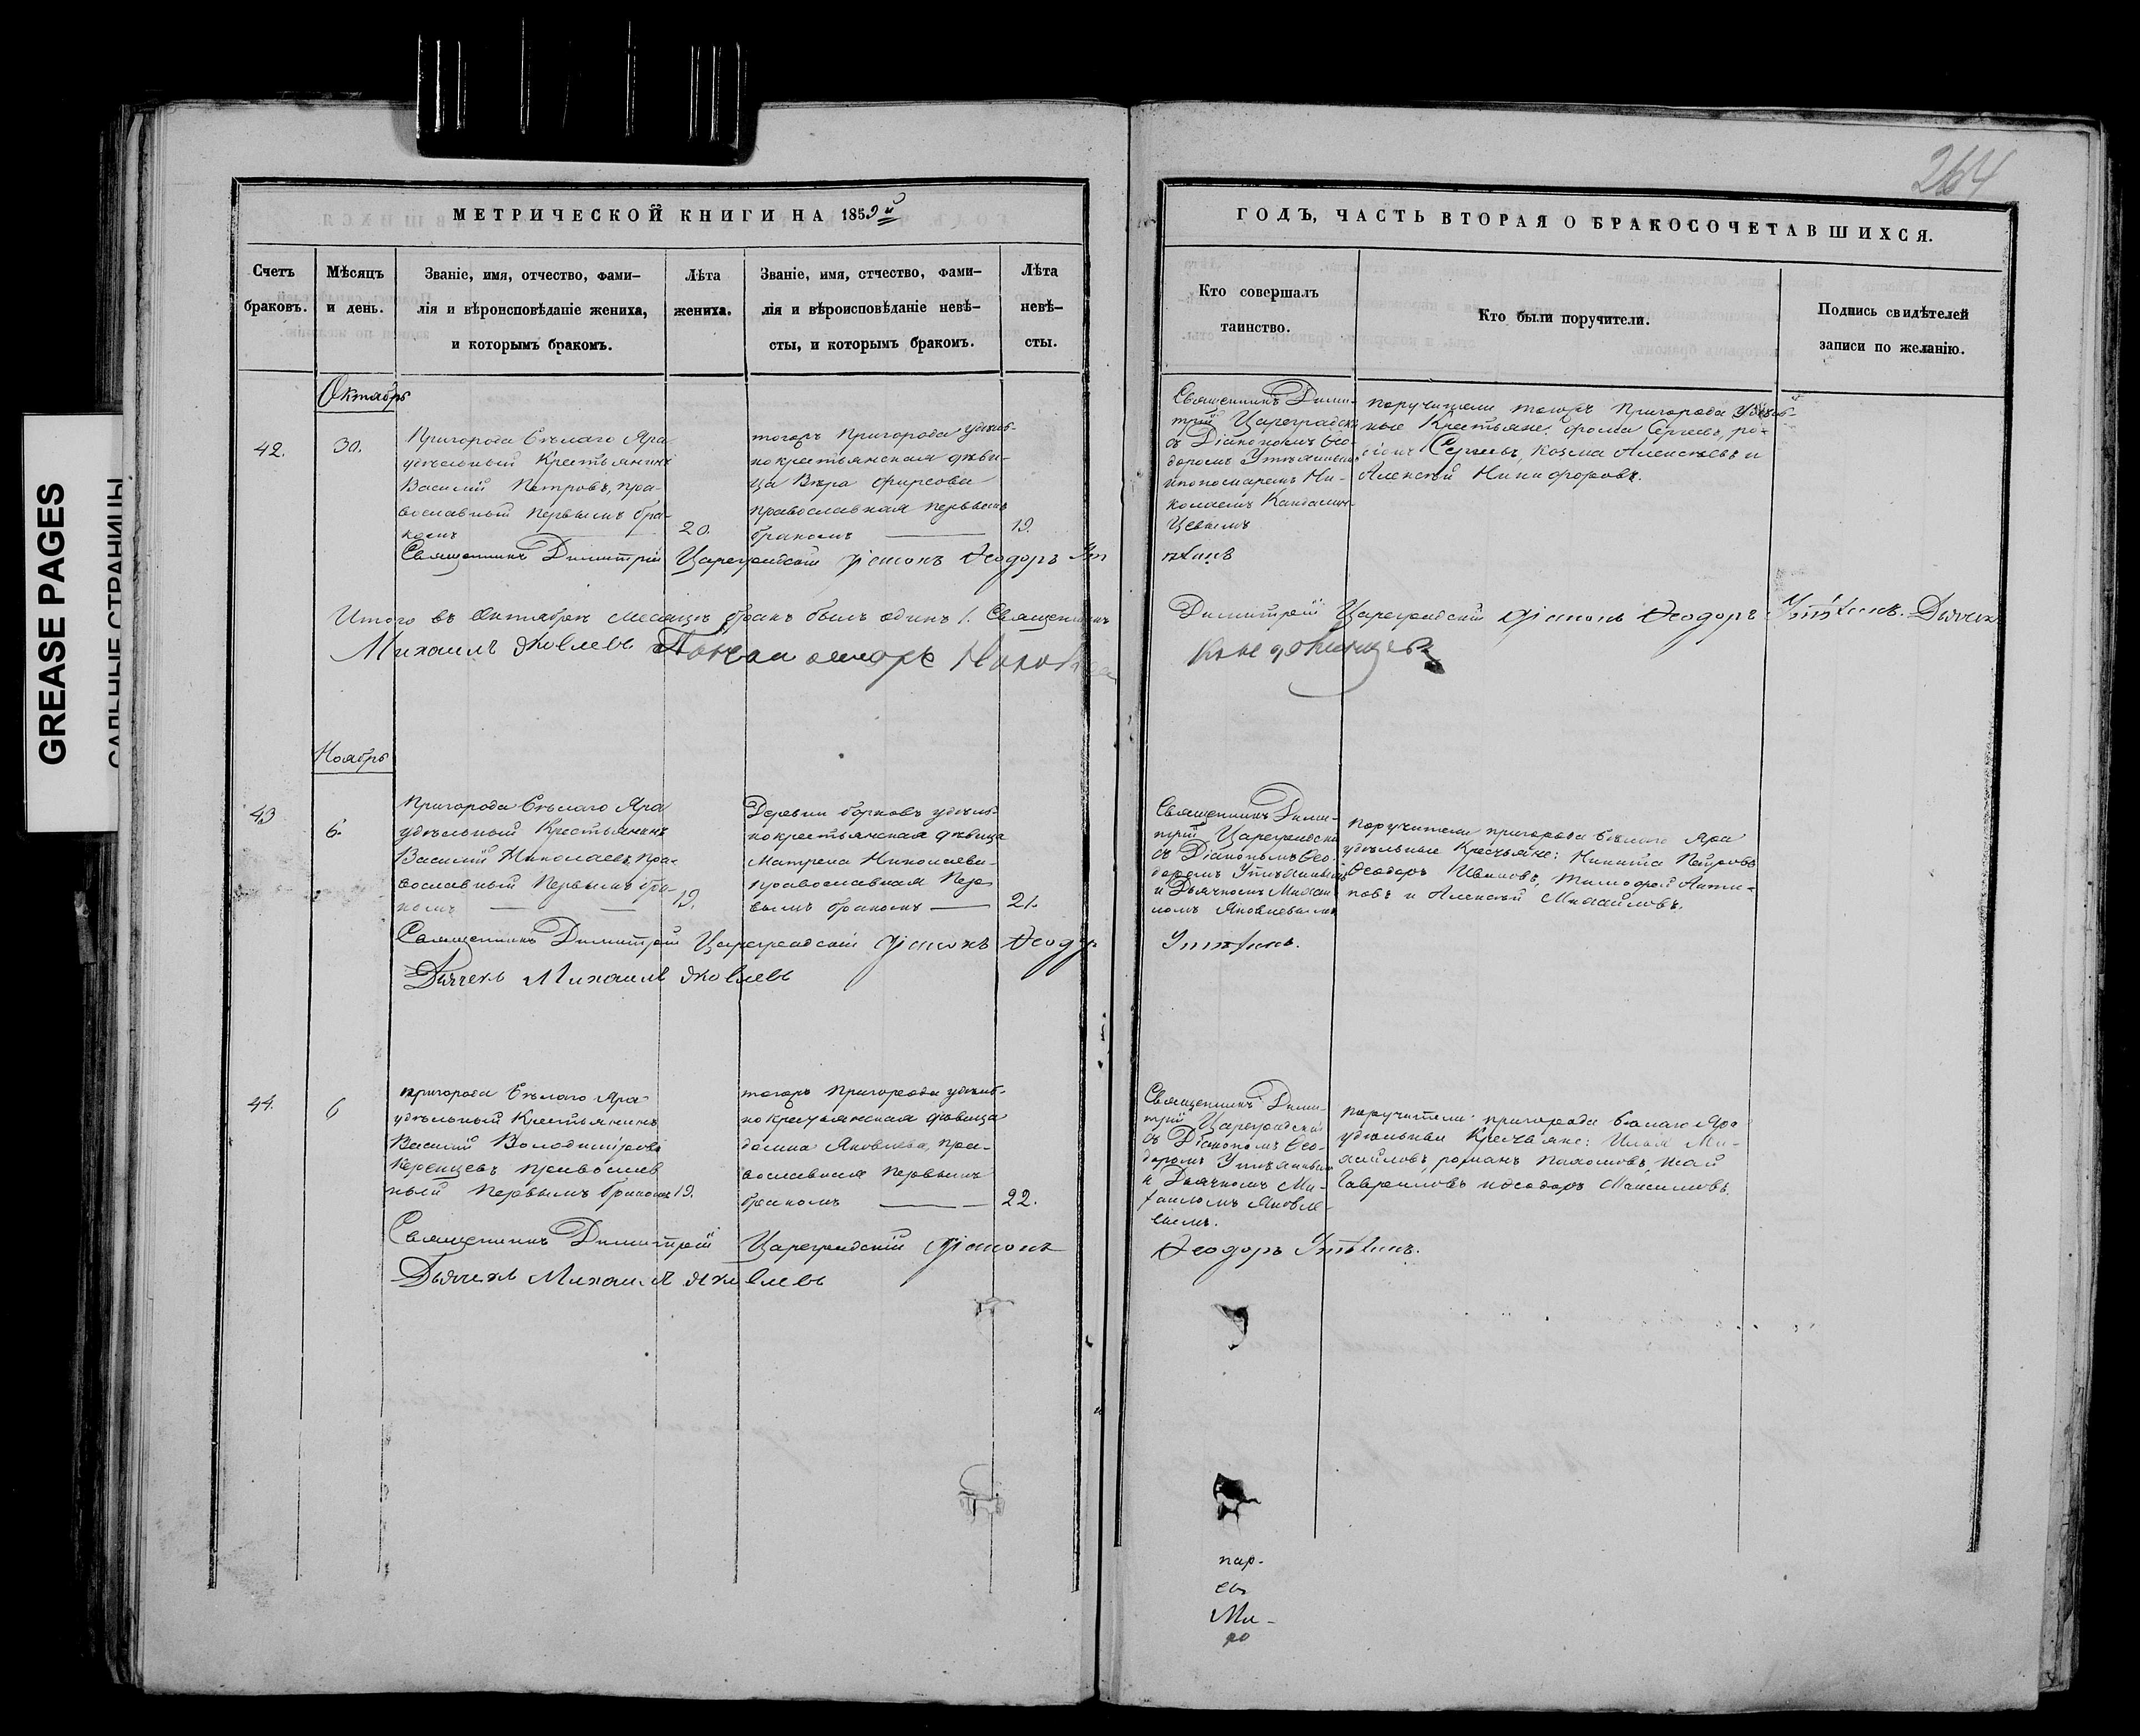 264
МЕТРИЧЕСКОЙ КНИГИ НА 1859й
ГОДЪ, ЧАСТЬ ВТОРАЯ О БРАКОСОЧЕТАВШИХСЯ.
Счетъ
браковъ.
Мѣсяцъ
и день.
Званіе, имя, отчество, фами-
лія и вѣроисповѣданіе жениха,
и которымъ бракомъ.
Лѣта
жениха.
Званіе, имя, отчество, фами-
лія и вѣроисповѣданіе невѣ-
сты, и которымъ бракомъ.
Лѣта
невѣ-
сты.
Кто совершалъ
таинство.
Кто были поручители.
Подпись свидѣтелей
записи по желанію.
Октябрь
42.
30.
Пригорода Бѣлаго Яра
удѣльный Крестьянинъ
Василій Петровъ, пра-
вославный первымъ бра-
комъ
20.
тогожъ Пригорода удѣль-
нокрестьянская дѣви-
ца Вѣра Фирсова
православная первымъ
бракомъ
19.
Священникъ Дими-
трій Цареградскій
съ Діакономъ Ѳео-
доромъ Утѣхинымъ
и пономаремъ Ни-
колаемъ
поручители тогожъ Пригорода удѣль-
ные Крестьяне: Фома Сергѣевъ, ро-
Сергѣевъ, Козма Алексѣевъ и
Алексѣй Никифоровъ.
Священникъ Димитрій Цареградскій Діаконъ Ѳеодоръ Ут
ѣхинъ
Итого въ Октябрѣ месяцѣ бракъ былъ одинъ 1. Священникъ
Димитрій Цареградскій Діаконъ Ѳеодоръ Утѣхинъ. Дьячекъ
Михаилъ Яковлевъ
Ноябрь
43
6.
Пригорода Бѣлаго Яра
удѣльный Крестьянинъ
Василій Николаевъ, пра-
вославный первымъ бра-
комъ
19.
Деревни Борковъ удѣль-
нокрестьянская дѣвица
Матрена Николаева
православная пер-
вымъ бракомъ
21.
Священникъ Дими-
трій Цареградскій
съ Діакономъ Ѳео-
доромъ Утѣхинымъ
и Дьячкомъ Михаи-
ломъ Яковлевымъ
Поручители пригорода Бѣлаго Яра
удѣльные Крестьяне: Никита Петровъ
Ѳеодоръ Ивановъ, Тимофей Анти-
повъ и Алексѣй Михайловъ.
Священникъ Димитрій Цареградскій Діаконъ Ѳеодоръ
Утѣхинъ.
Дьячекъ Михаилъ Яковлевъ
44.
6
пригорода Бѣлаго Яра
удѣльный Крестьянинъ
Василій Володиміровъ
Керенцевъ православ
ный первымъ бракомъ
19.
тогожъ Пригорода удѣль-
нокрестьянская дѣвица
Яковлева, пра-
вославная первымъ
бракомъ
22.
Священникъ Дими-
трій Цареградскій
съ Діакономъ Ѳео-
доромъ Утѣхинымъ
и Дьячкомъ Ми-
хаиломъ Яковле-
вымъ.
поручители пригорода Бѣлаго Яра
удѣльные Крестьяне: Ми-
хайловъ, романъ Пахомовъ,
Гавриловъ и Ѳеодоръ Максимовъ.
Священникъ Димитрій Цареградскій Діаконъ
Ѳеодоръ Утѣхинъ.
Дьячекъ Михаилъ Яковлевъ
пар-
Ми-
GREASE PAGES
САЛЬНЫЕ СТРАНИЦЫ